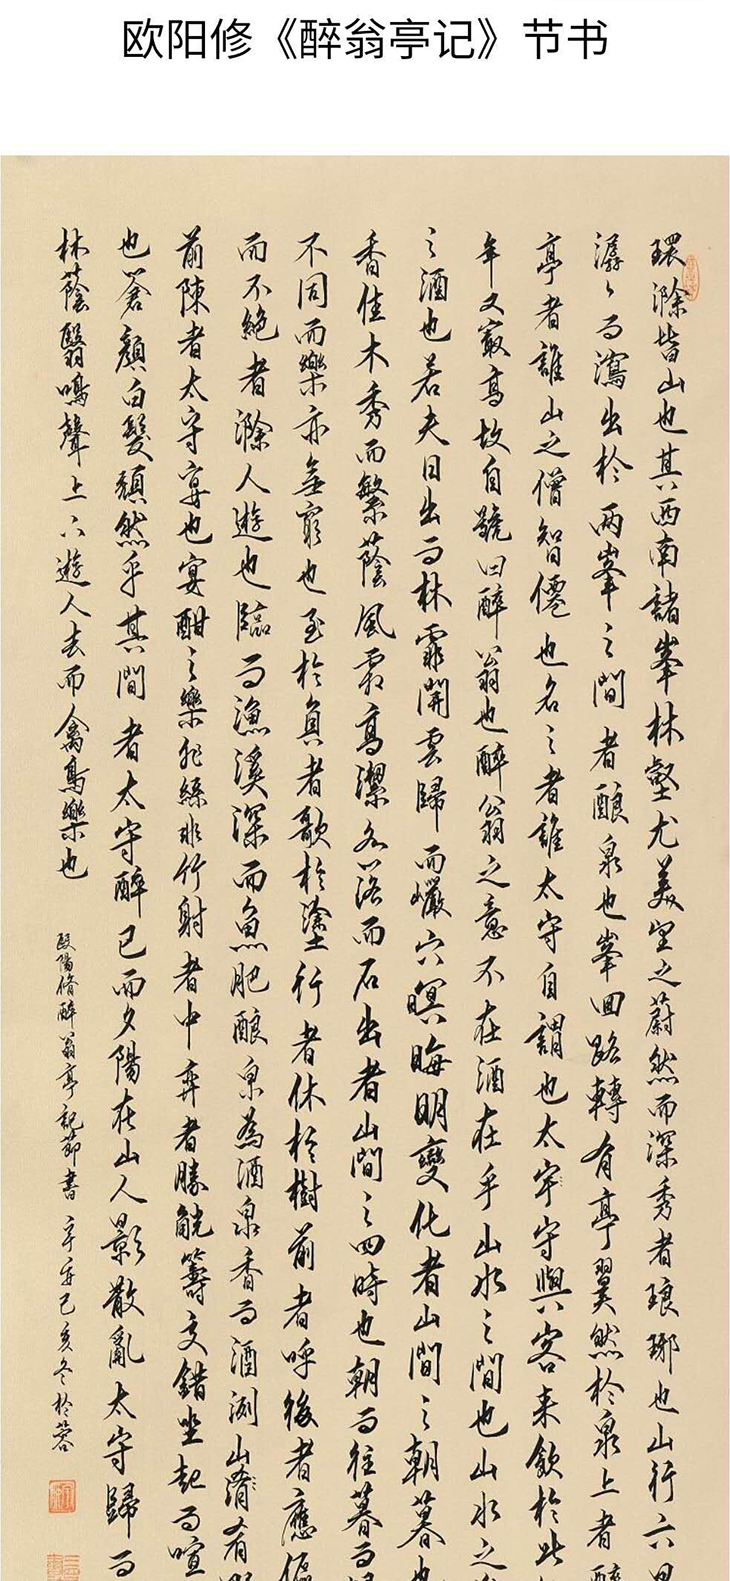 欧阳修《醉翁亭记》节书
環滁皆山也其西南諸峯林壑尤美望之蔚然而深秀者琅琊也山行六里
潺〻而瀉出於两峯之間者酿泉也峯回路轉有亭翼然於泉上者醉
亭者誰山之僧智僊也名之者誰太守自謂也太守與客来飲於此
年又最高故自號曰醉翁也醉翁之意不在酒在乎山水之間也山水之
之酒也若夫日出而林霏開雲歸而巖穴暝晦明變化者山間之朝暮也
香佳木秀而繁蔭風霜高潔水落而石出者山間之四時也朝而往暮而
不同而樂亦無窮也至於負者歌於塗行者休於樹前者呼後者應傴
而不絶者滁人遊也臨而漁溪深而魚肥酿泉為酒泉香而酒洌山肴
前陳者太守宴也宴酣之樂非絲非竹射者中弈者勝觥籌交錯坐起而喧
也蒼顏白髮頹然乎其間者太守醉已而夕陽在山人影散亂太守歸而
林蔭翳鳴聲上下遊人去而禽鳥樂也
歐陽脩醉翁亭記節書 己亥冬於蓉